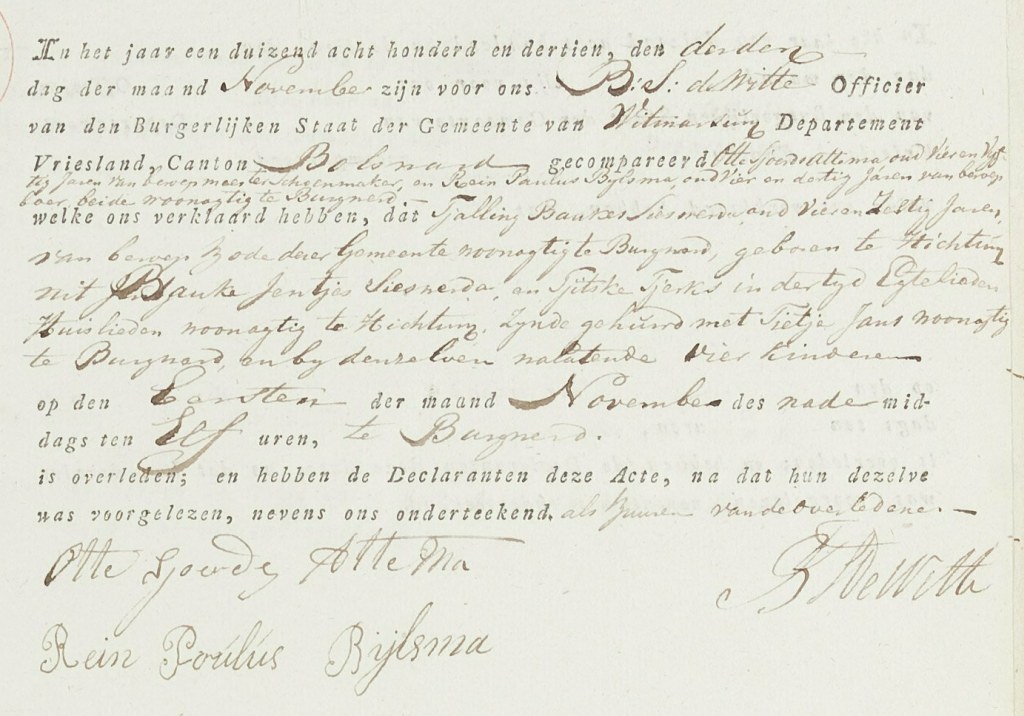 In het jaar een duizend acht honderd en dertien, den derden
dag der maand November zijn voor ons B: S: de Witte Officier
van den Burgerlijken Staat der Gemeente van Witmarsum Departement
Vriesland, Canton Bolsward gecompareerd Otte Sjoerds Attema, oud Vier en Vijf-
tig Jaren van beroep meester schoenmaker, en Rein Paulus Bijlsma, oud Vier en dertig Jaren van beroep
boer, beide woonagtig te Burgwerd
welke ons verklaard hebben, dat Tjalling Baukes Sieswerda, oud Vier en Zestig Jaren,
van beroep Bode deser Gemeente woonagtig te Burgward, geboren te Hichtum
uit Bauke Jentjes Sieswerda, en Tjitske Tjerks in der tyd Egtelieden
Huislieden woonagtig te Hichtum, Zynde gehuwd met Tietje Jans woonagtig
te Burgward, en by denzelven nalatende vier kinderen
op den Eersten der maand November des nade mid-
dags ten Elf uren, te Burgwerd.
is overleden; en hebben de Declaranten deze Acte, na dat hun dezelve
was voorgelezen, nevens ons onderteekend, als Buuren van de overledene. —
Otte Sjoerds Attema
B S De Witte
Rein Poúlús Bijlsma